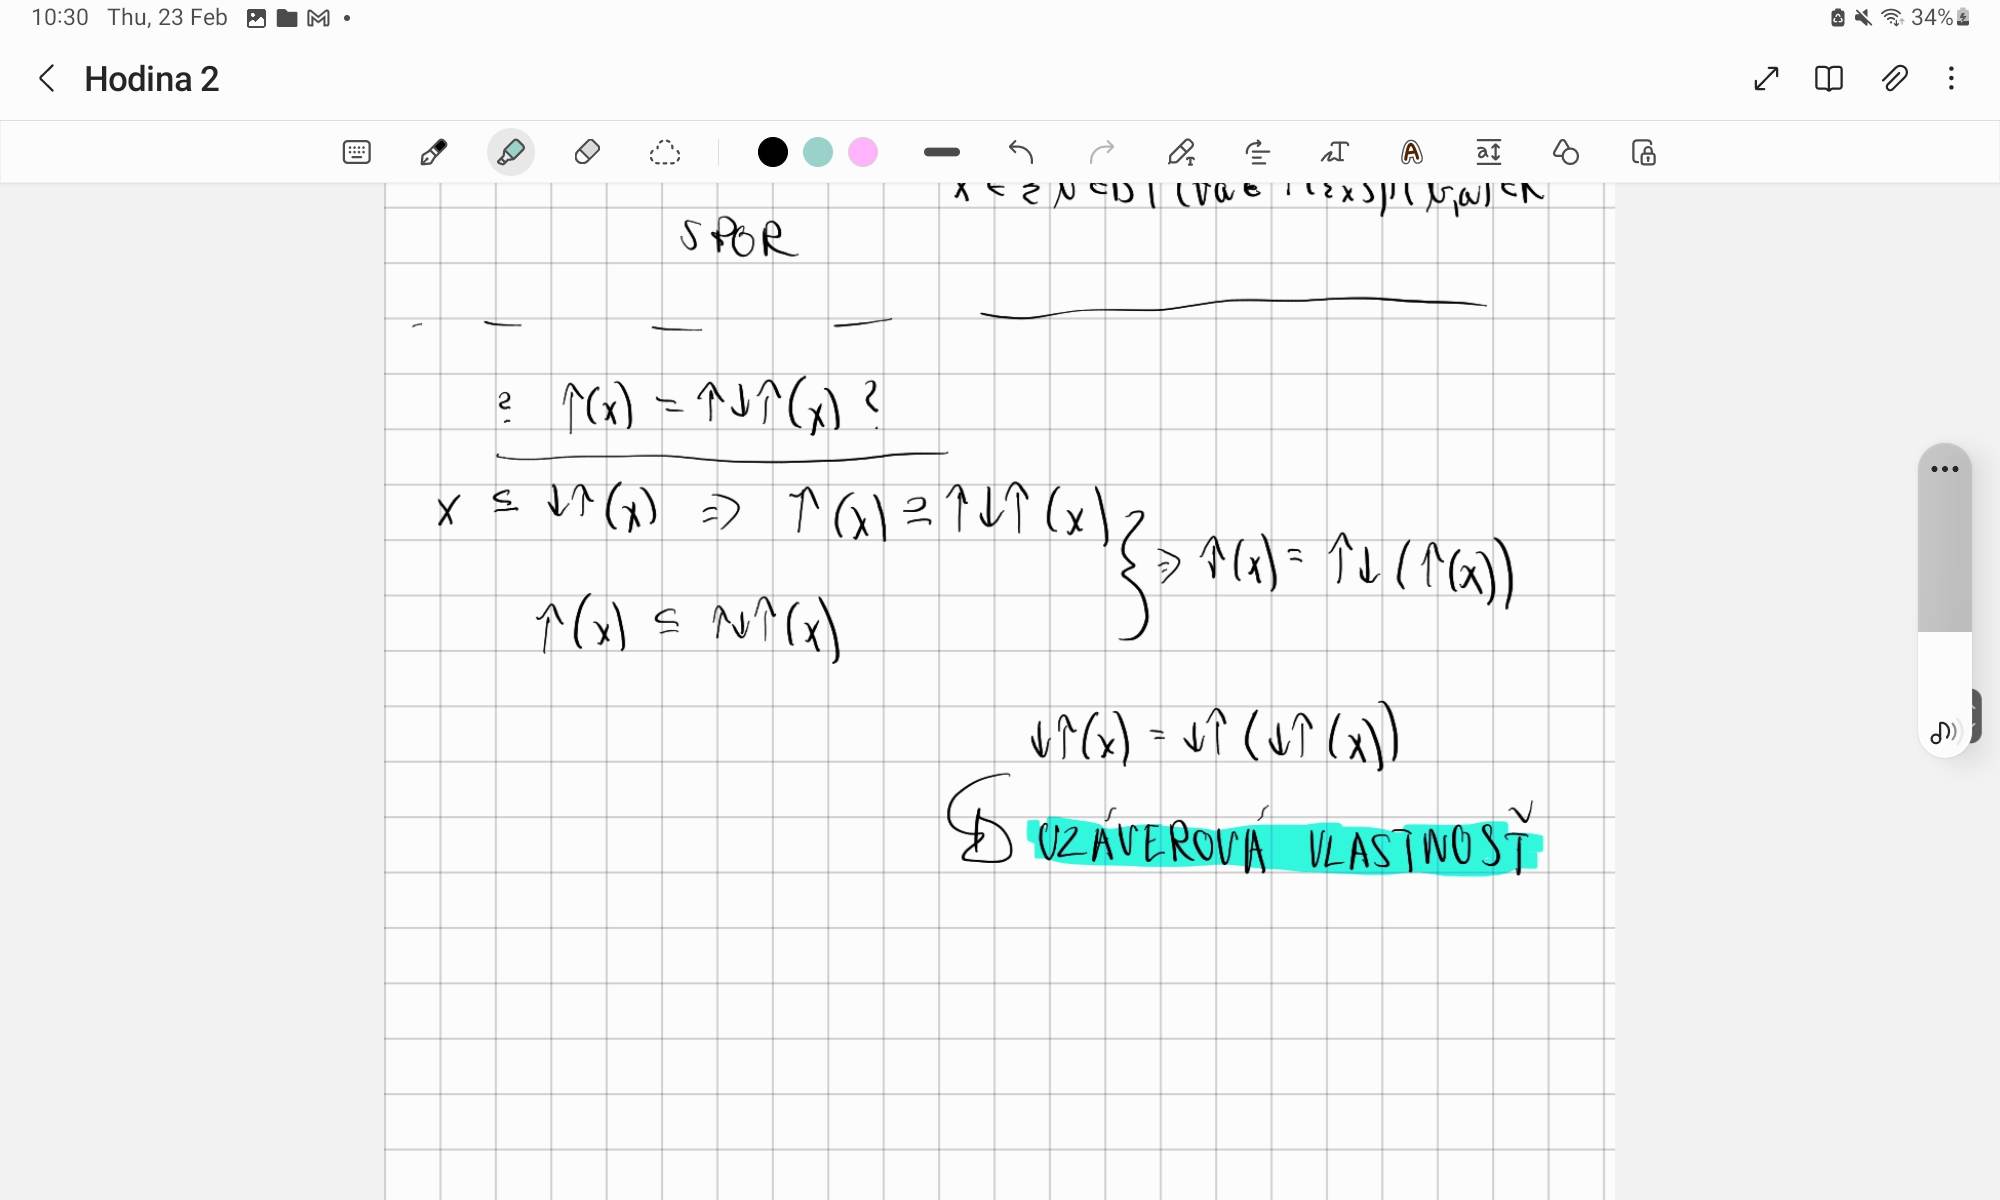 10:30 Thu, 23 Feb
34%
Hodina 2
SPOR
? ↑(x) = ↑↓↑(x) ?
x ⊆ ↓↑(x) ⇒ ↑(x) ⊇ ↑↓↑(x)
⇒ ↑(x) = ↑↓(↑(x))
↑(x) ⊆ ↑↓↑(x)
↓↑(x) = ↓↑(↓↑(x))
UZÁVEROVÁ VLASTNOSŤ